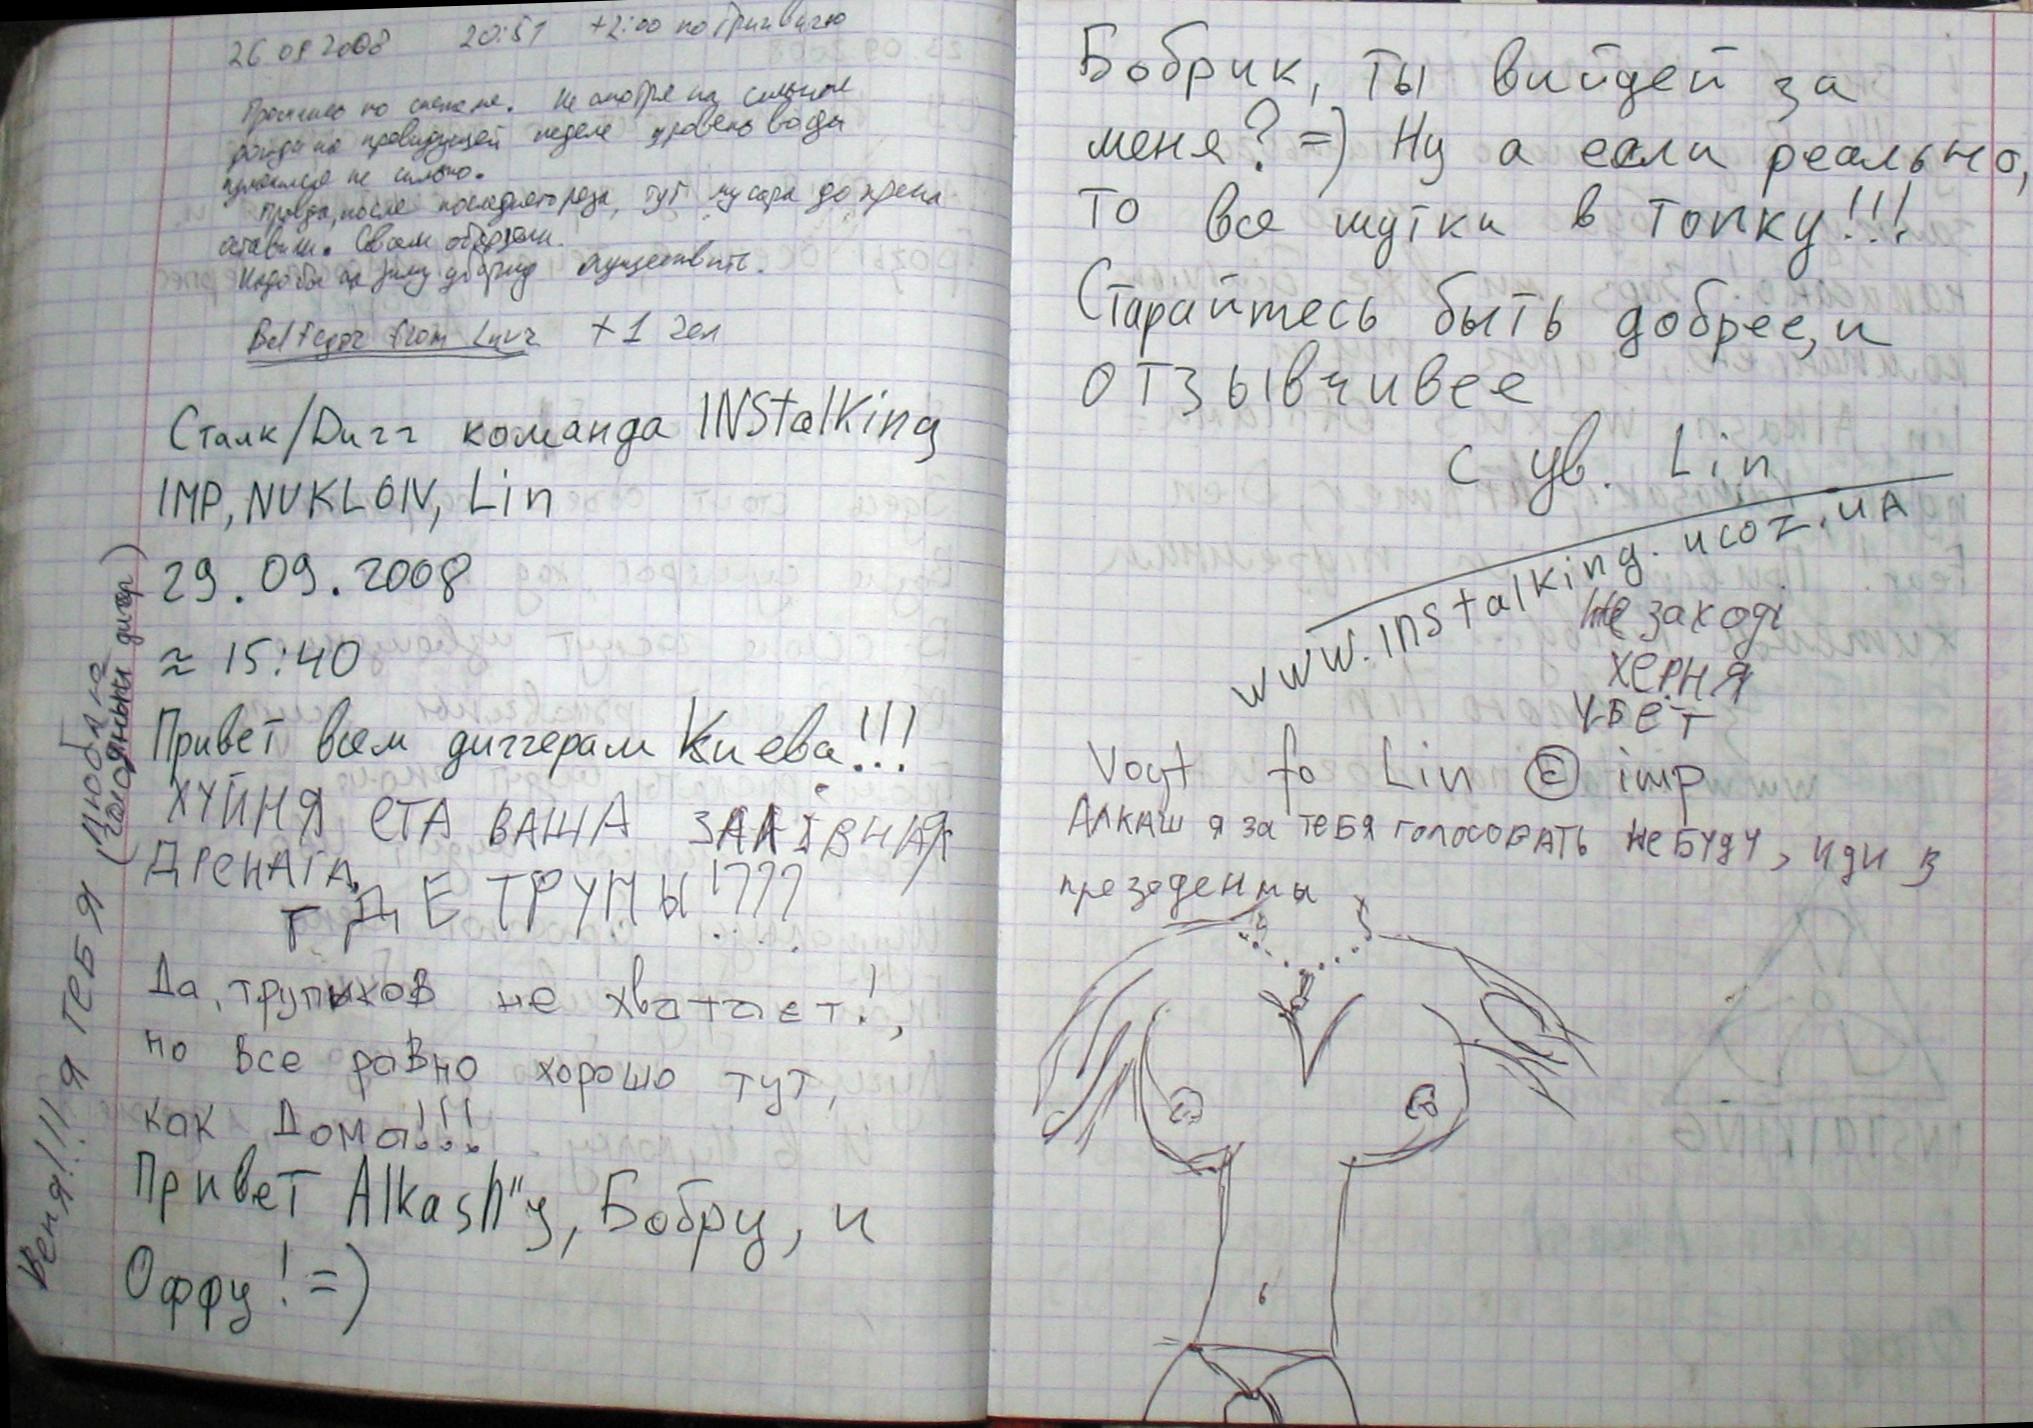 26 09 2008 20:51 +2:00 по Гринвичю
Не смотря на сильные
дожди на предидущей неделе уровень воды
не сильно.
Правда, после последнего раза, тут мусора до хрена
оставили. Совсем
Надо бы осуществить.
Belfegor from +1 чел
Сталк/Digg команда INStalKing
IMP, NUKLON, Lin
29.09.2008
≈ 15:40
Привет всем диггерам Киева!!!
ХУЙНЯ ЕТА ВАША
ДРЕНАГА,
ГДЕ ТРУПЫ!???
Да, трупиков не хватает!,
но все равно хорошо тут,
как Дома!!!
Привет Alkash"у, Бобру, и
Оффу! =)
Веня!!! Я ТЕБЯ люблю
Бобрик, ты вийдей за
меня? =) Ну а если реально,
то все шутки в топку!!!
Старайтесь быть добрее, и
отзывчивее
с ув. Lin
www.instalking.ucoz.uA
Не заході
ХЕРНЯ
УБЕТ
Voyt fo Lin © imp
АЛКАШ Я ЗА ТЕБЯ ГОЛОСОВАТЬ НЕ БУДУ, ИДИ В
презеденты